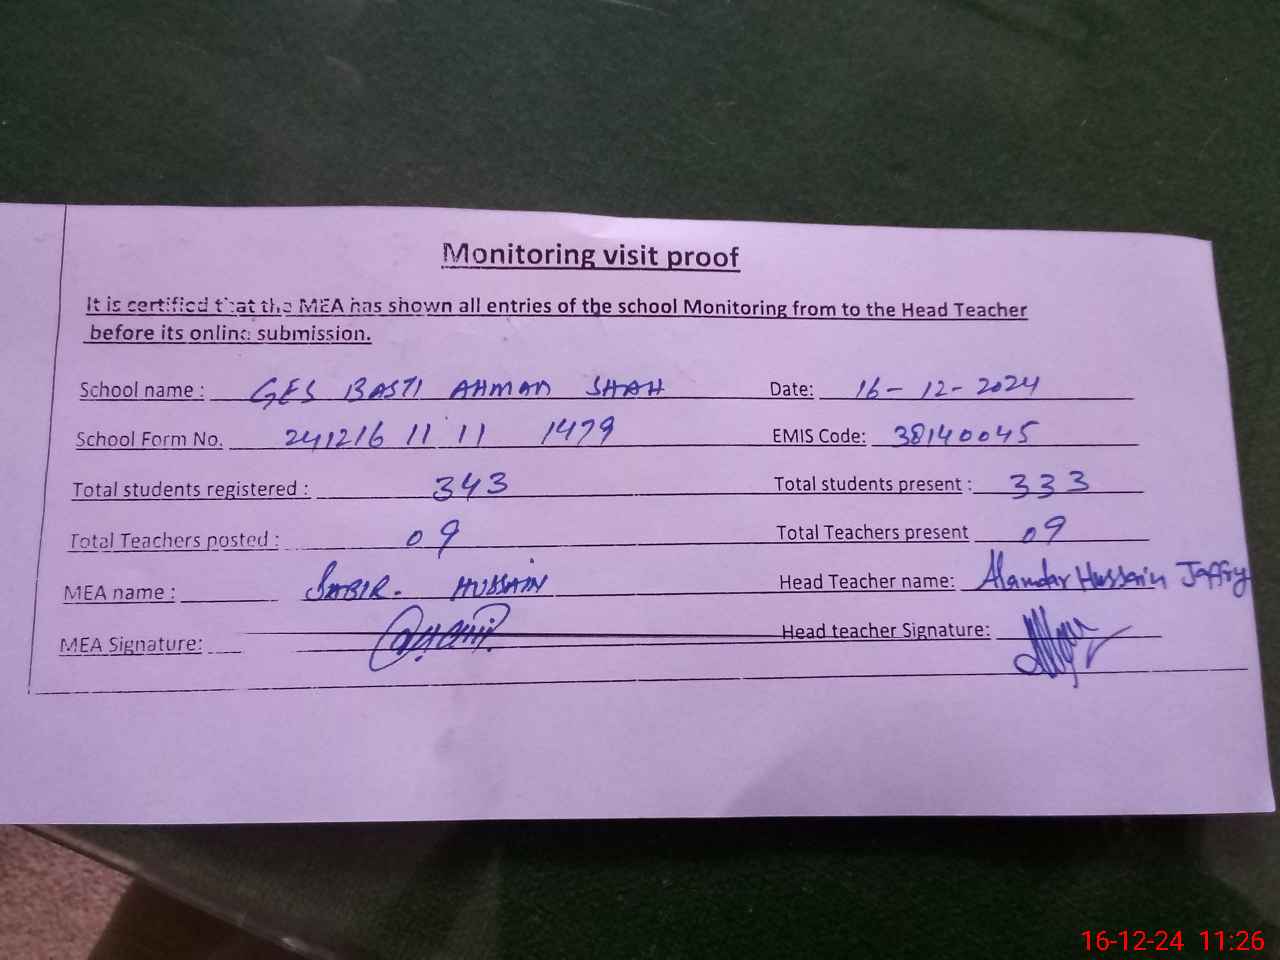 Monitoring visit proof
It is certified that the MEA has shown all entries of the school Monitoring from to the Head Teacher
before its online submission.
School name : GES BASTI AHMAD SHAH Date: 16-12-2024
School Form No. 241216 11 11 1479 EMIS Code: 38140045
Total students registered : 343 Total students present : 333
Total Teachers posted : 09 Total Teachers present 09
MEA name : SABIR. HUSSAIN Head Teacher name: Alamdar Hussain Jaffry
MEA Signature: Head teacher Signature:
16-12-24 11:26